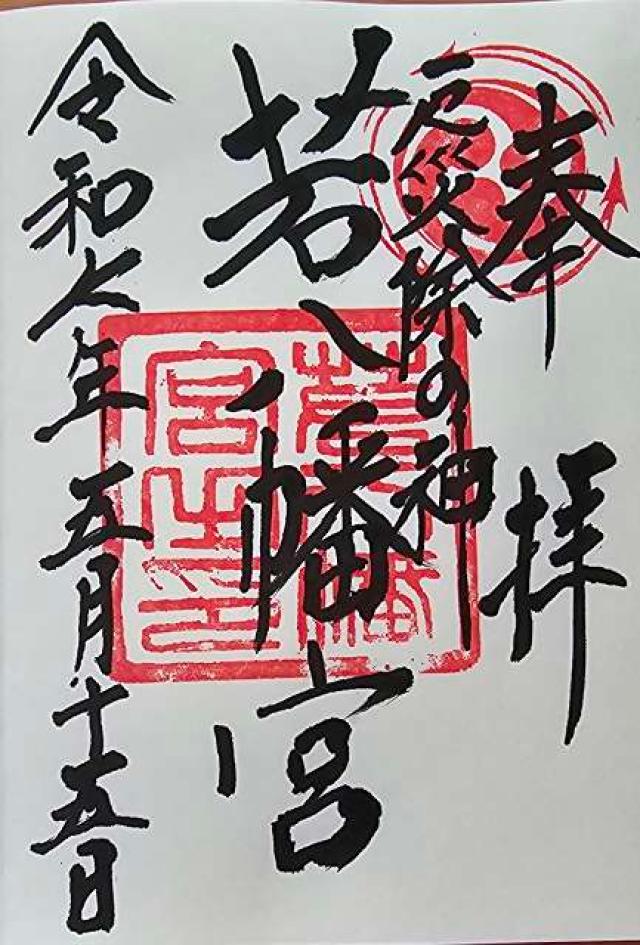 奉拝
厄災除の神
若八幡宮
令和六年五月十五日
若八幡
宮之印